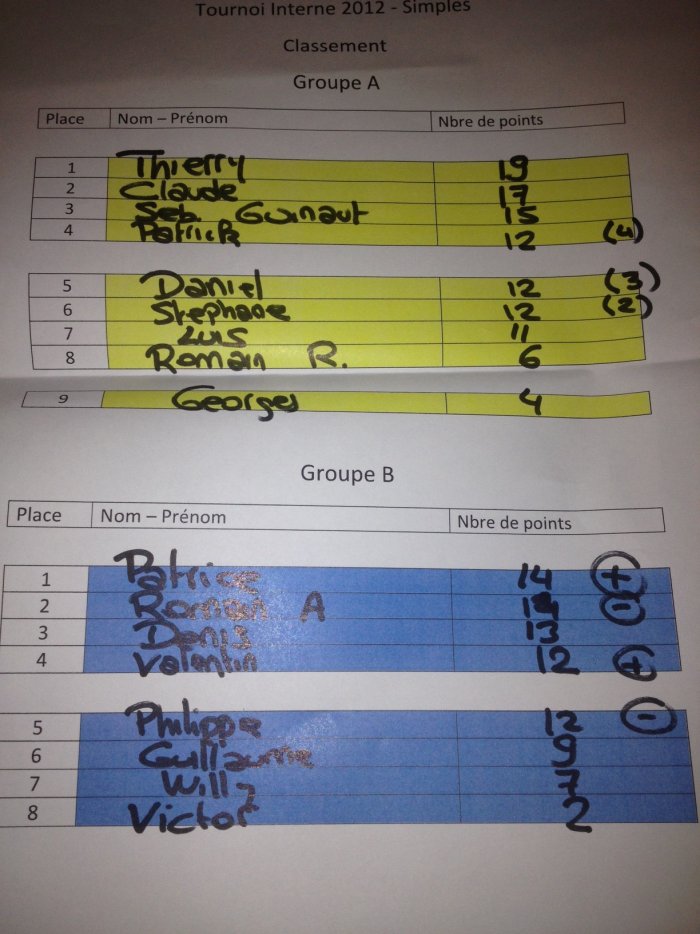 Tournoi Interne 2012 - Simples
Classement
Groupe A
Place Nom – Prénom Nbre de points
1 Thierry 19
2 Claude 17
3 Seb. Guinaut 15
4 Patrick 12 (4)
5 Daniel 12 (3)
6 Stephane 12 (2)
7 Luis 11
8 Romain R. 6
9 Georges 4
Groupe B
Place Nom – Prénom Nbre de points
1 Patrice 14 +
2 Romain A 14 -
3 Denis 13
4 Valentin 12 +
5 Philippe 12 -
6 Guillaume 9
7 Willy 7
8 Victor 2